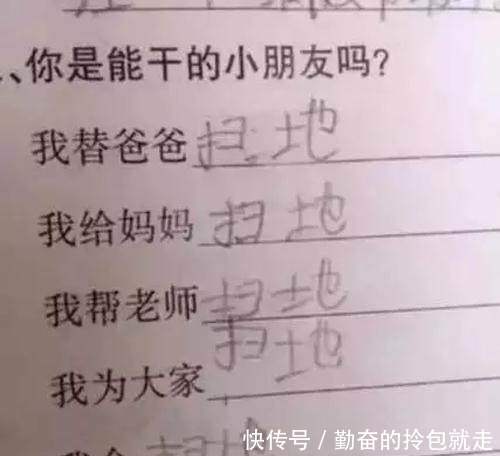 、你是能干的小朋友吗?
我替爸爸扫地
我给妈妈扫地
我帮老师扫地
我为大家扫地
扫地
快传号 / 勤奋的拎包就走